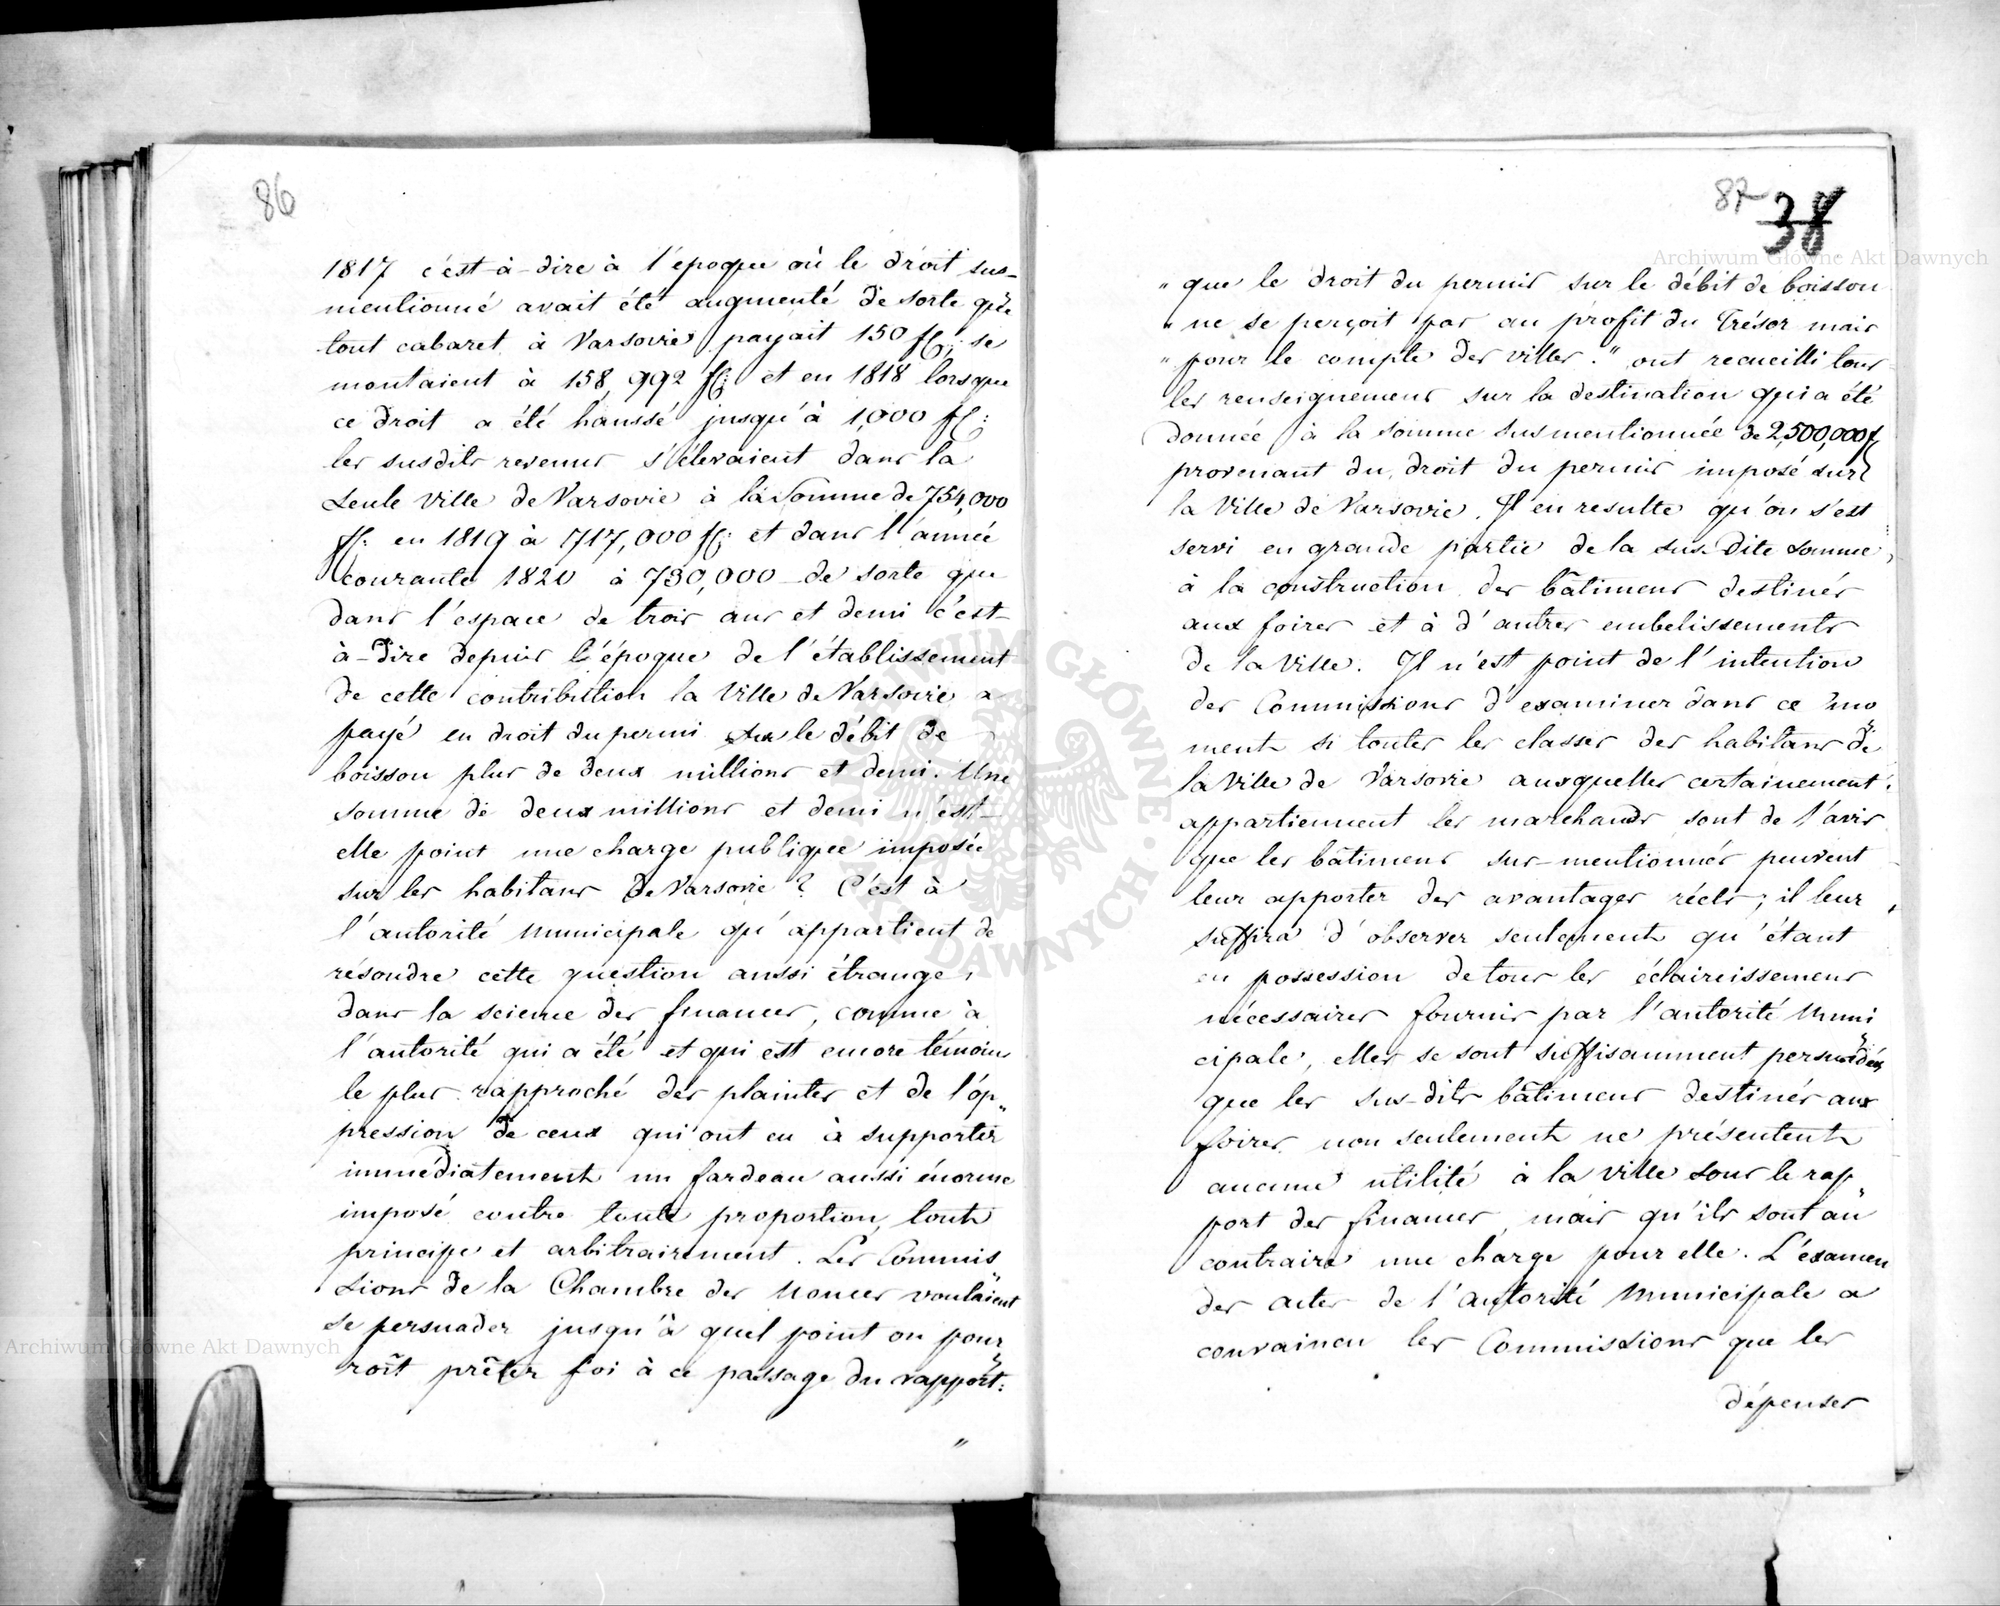 86
1817 c'est-à-dire à l'époque où le droit sus-
mentionné avait été augmenté de sorte que
tout cabaret à Varsovie payait 150 fl: se
montaient à 158,992 fl: et en 1818 lorsque
ce droit a été haussé jusqu'à 1,000 fl:
les susdits revenus s'élevaient dans la
seule ville de Varsovie à la somme de 754,000
fl: en 1819 à 717,000 fl: et dans l'année
courante 1820 à 730,000 de sorte que
dans l'espace de trois ans et demi c'est-
à-dire depuis l'époque de l'établissement
de cette contribution la Ville de Varsovie a
payé en droit du permi sur le débit de
boisson plus de deux millions et demi. Une
somme de deux millions et demi n'est-
elle point une charge publique imposée
sur les habitans de Varsovie ? C'est à
l'autorité Municipale qu'appartient de
résoudre cette question aussi étrange,
dans la science des finances, comme à
l'autorité qui a été et qui est encore témoin
le plus rapproché des plaintes et de l'op„
pression de ceux qui ont eu à supporter
immédiatement un fardeau aussi énorme
imposé contre toute proportion, tout
principe et arbitrairement. Les Commis„
sions de la Chambre des Nonces voulaient
se persuader jusqu'à quel point on pour„
roît prêter foi à ce passage du rapport:
"
87
38
" que le droit du permis sur le débit de boisson
" ne se perçoit pas au profit du Trésor mais
" pour le compte des villes." ont recueilli tous
les renseignemens sur la destination qui a été
donnée à la somme susmentionnée de 2,500,000 f
provenant du droit du permis imposé sur
la Ville de Varsovie. Il en resulte qu'on s'est
servi en grande partie de la sus-dite somme,
à la construction des bâtimens destinés
aux foires et à d'autres embelissements
de la Ville. Il n'est point de l'intention
des Commissions d'examiner dans ce mo„
ment si toutes les classes des habitans de
la Ville de Varsovie auxquelles certainement
appartiennent les marchands sont de l'avis
que les bâtimens sus-mentionnés peuvent
leur apporter des avantages réels; il leur
suffira d'observer seulement qu'étant
en possession de tous les éclaircissemens
nécessaires fournis par l'autorité Muni„
cipale, elles se sont suffisamment persuadées
que les sus-dits bâtimens destinés aux
foires non seulement ne présentent
aucune utilité à la ville sous le rap„
port des finances, mais qu'ils sont au
contraire une charge pour elle. L'examen
des actes de l'autorité Municipale a
convaincu les Commissions que les
dépenses
Archiwum Główne Akt Dawnych
Archiwum Główne Akt Dawnych
ARCHIWUM GŁÓWNE AKT DAWNYCH